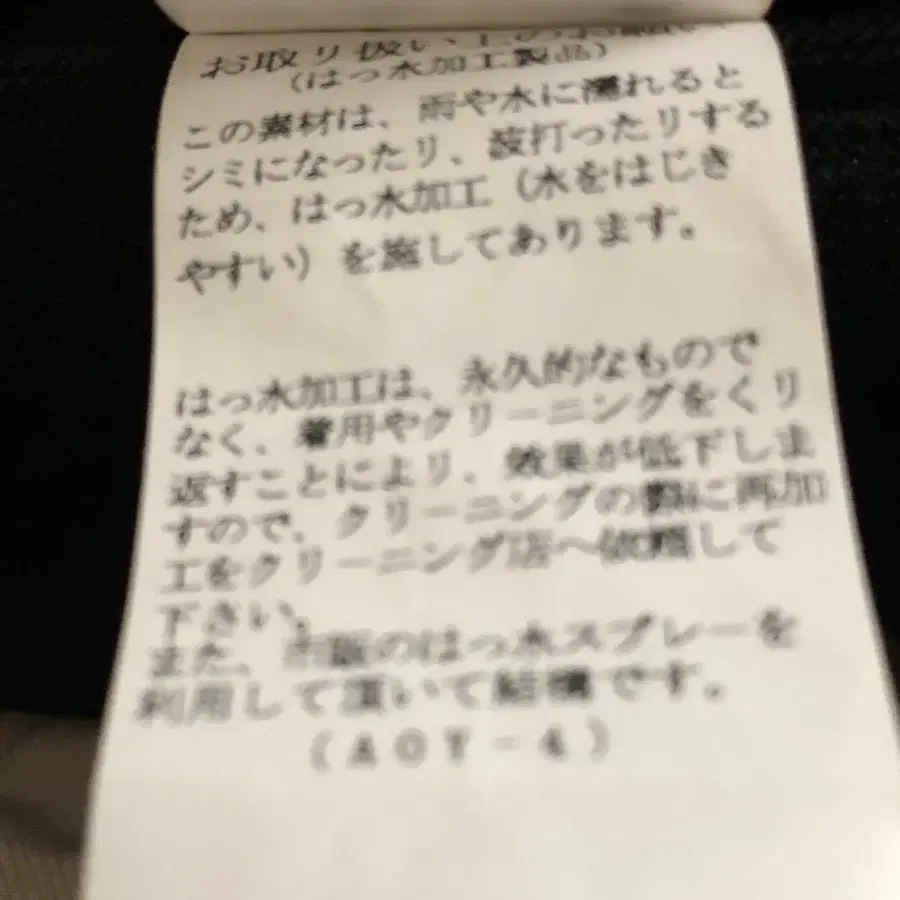 お取り扱い上のお願い
(はっ水加工製品)
この素材は、雨や水に濡れると
シミになったり、波打ったりする
ため、はっ水加工(水をはじき
やすい)を施してあります。
はっ水加工は、永久的なもので
なく、着用やクリーニングをくり
返すことにより、効果が低下しま
すので、クリーニングの際に再加
工をクリーニング店へ依頼して
下さい。
また、市販のはっ水スプレーを
利用して頂いて結構です。
(AOY-4)